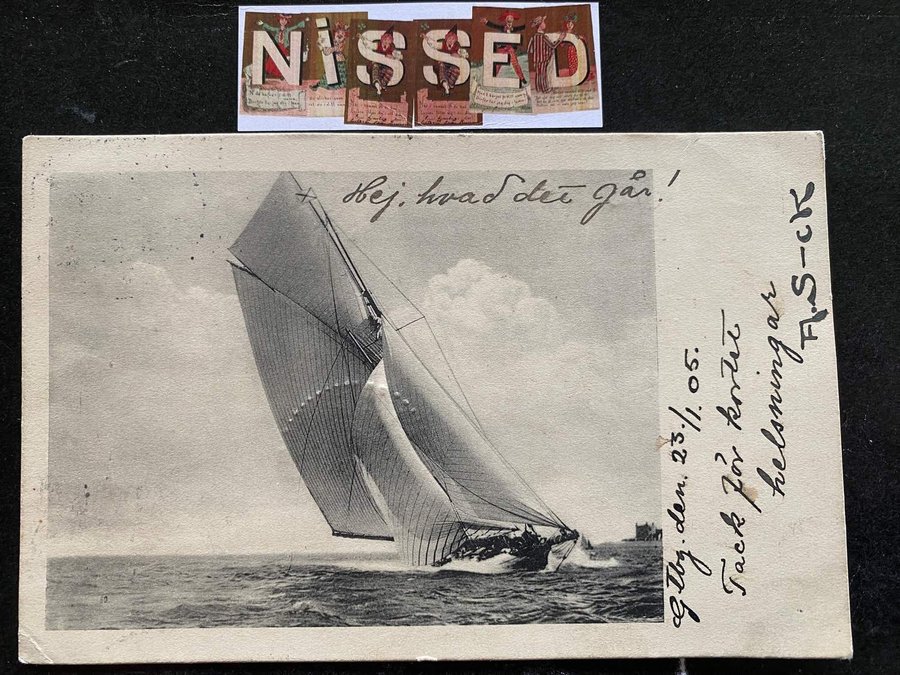 NiSSED
Hej, hvad det går!
Gtbg. den. 23/1. 05.
Tack för kortet
helsningar
A.S-ck